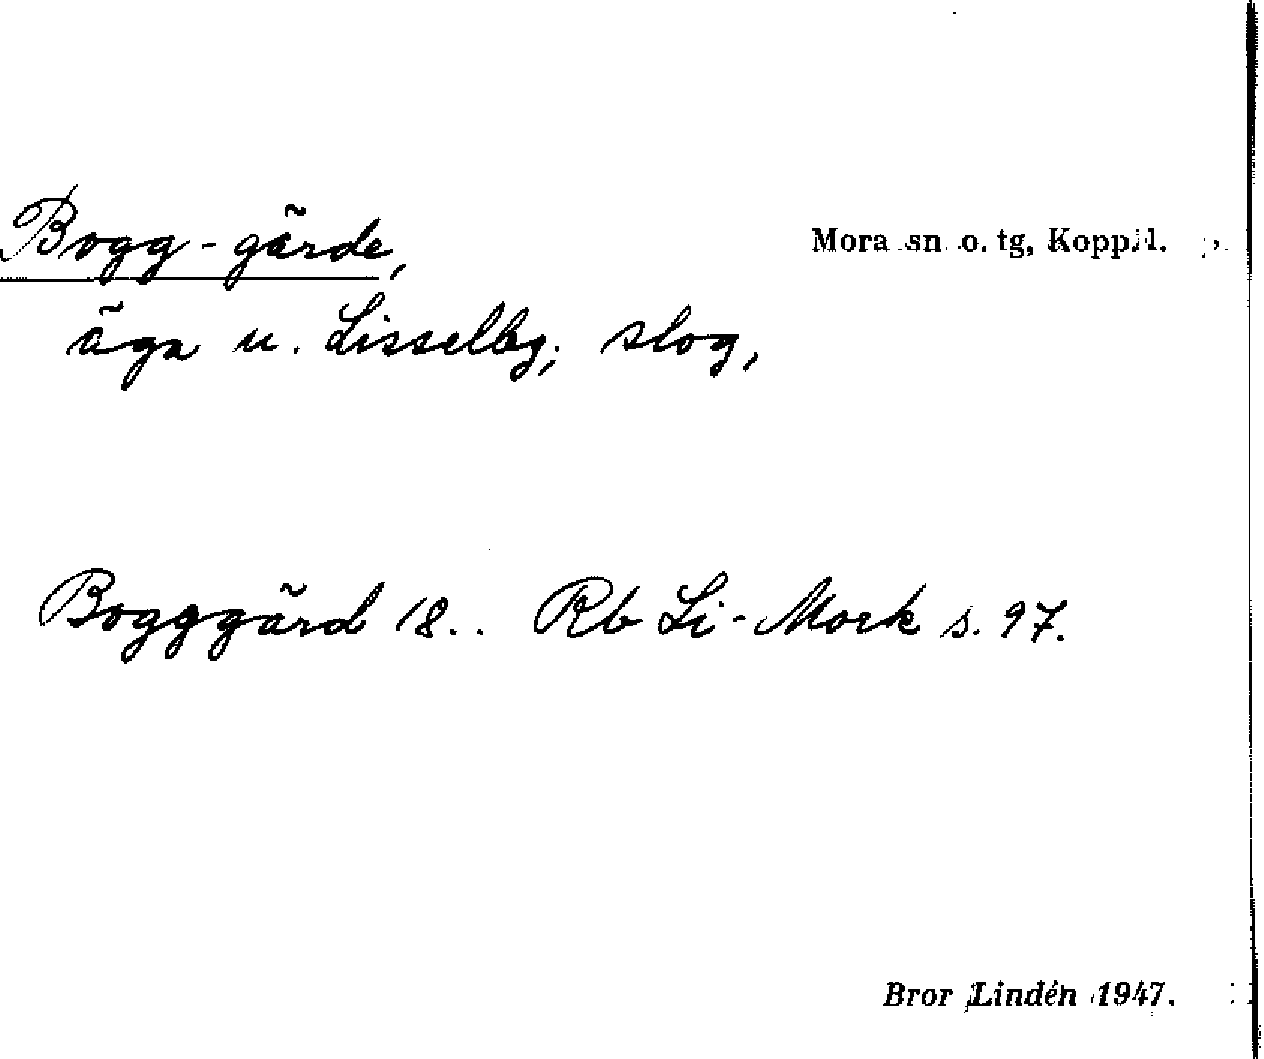 Bogg-gärde,
Mora sn o. tg, Kopp. l.
äga u. Lisselby; slog,
Bogggärd 18.. Rb Li-Mork s. 97.
Bror Lindén 1947.